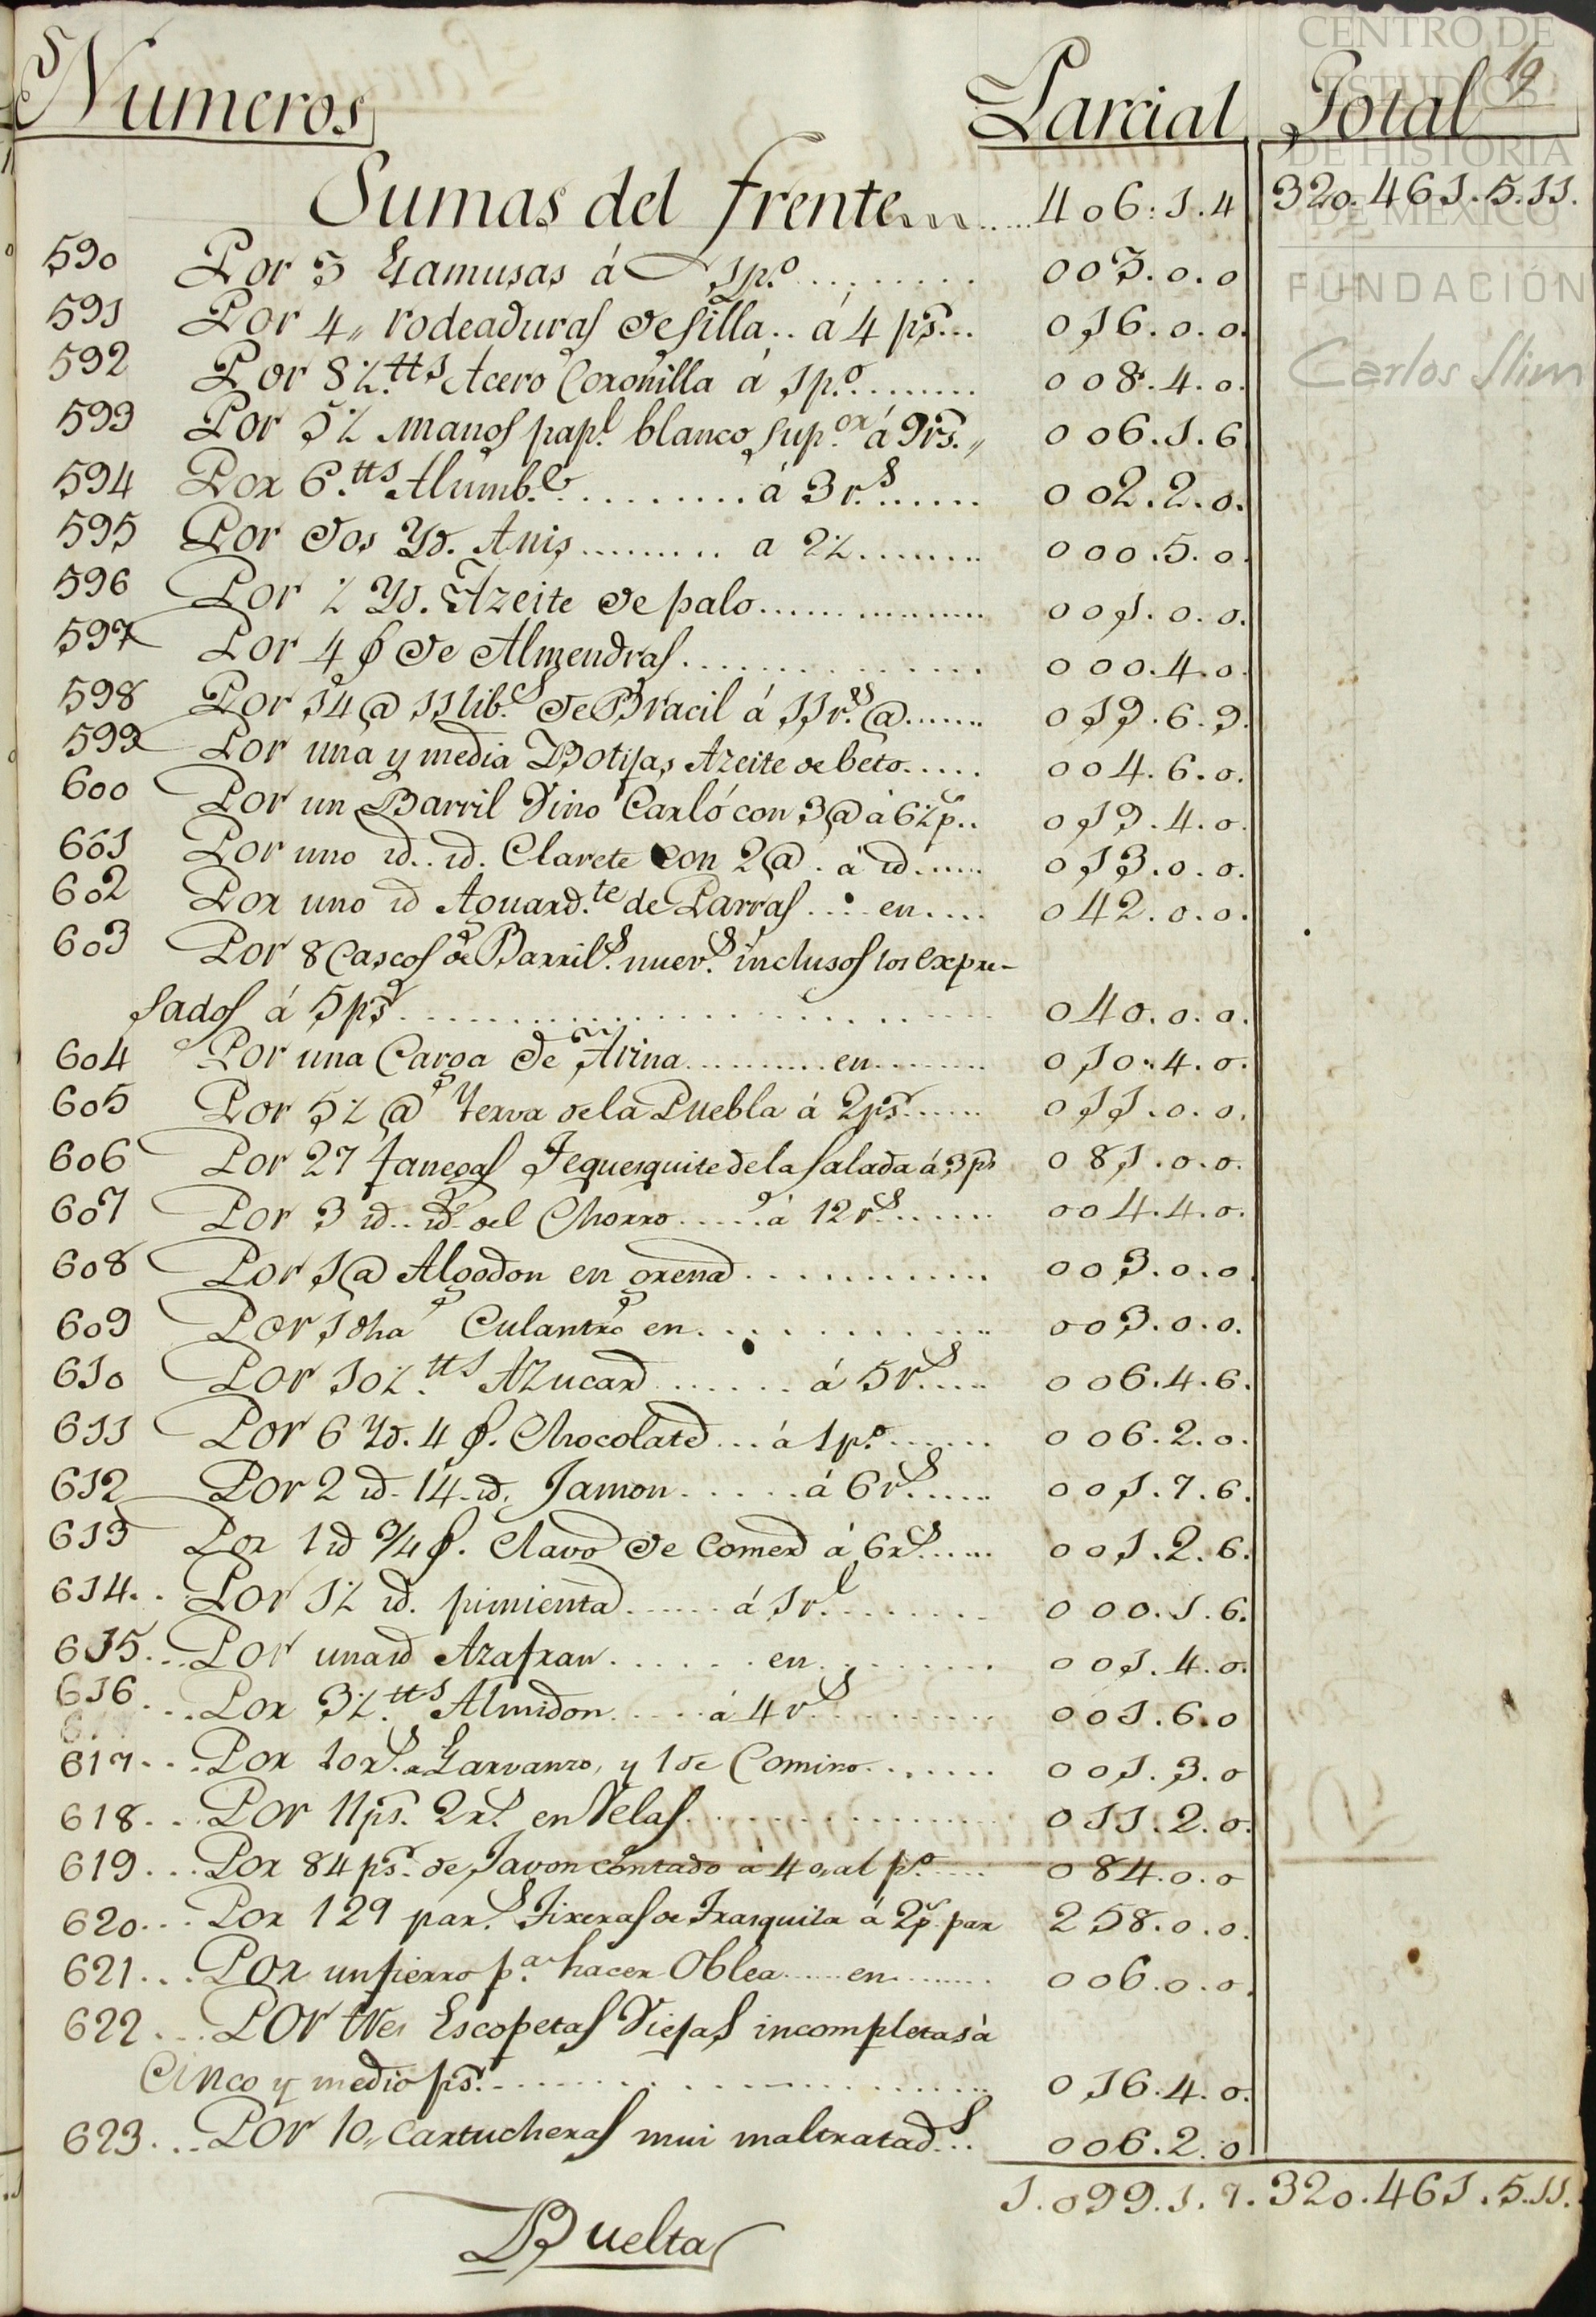 CENTRO DE
ESTUDIOS
DE HISTORIA
DE MEXICO
FUNDACIÓN
Carlos Slim
19
Numeros Parcial Total
Sumas del frente 406.1.4 320.461.5.11.
590 Por 3 Gamusas á 1 p.º 003.0.0
591 Por 4,, rodeaduras de silla á 4 ps. 016.0.0.
592 Por 8½ tts Acero Coronilla á 1 p.º 008.4.0.
593 Por 5½ manos pap.l blanco sup.or á 9 rs. 006.1.6
594 Por 6 tts Alumb.e á 3 r.s 002.2.0.
595 Por dos Yd. Anis a 2½ 000.5.0.
596 Por ½ Yd. Azeite de palo 001.0.0.
597 Por 4 de Almendras 000.4.0.
598 Por 14 @ 11 lib.s de Bracil á 11 r.s @ 019.6.9.
599 Por una y media Botijas Azeite de beto 004.6.0.
600 Por un Barril Vino Carló con 3 @ á 6½ p.s 019.4.0.
601 Por uno id. id. Clarete con 2 @ á id. 013.0.0.
602 Por uno id Aguard.te de Parras en 042.0.0.
603 Por 8 Cascos de Barril.s nuev.s inclusos los expre-
sados á 5 ps 040.0.0.
604 Por una Carga de Arina en 010.4.0.
605 Por 5½ @ Yerva de la Puebla á 2 ps. 011.0.0.
606 Por 27 fanegas Tequesquite de la Salada á 3 ps 081.0.0.
607 Por 3 id. id. del Chorro á 12 r.s 004.4.0.
608 Por 1 @ Algodon en grena 003.0.0.
609 Por 1 dha Culantro en 003.0.0.
610 Por 10½ tts Azucar á 5 r.s 006.4.6.
611 Por 6 Yd. 4 Chocolate á 1 p.º 006.2.0.
612 Por 2 id. 14 id. Jamon á 6 r.s 001.7.6.
613 Por 1 id ¾ Clavo de Comer á 6 r.s 001.2.6.
614 Por 1½ id. pimienta á 1 r.l 000.1.6.
615 Por una id Azafran en 001.4.0.
616 Por 3½ tts Almidon á 4 r.s 001.6.0
617 Por 10 r.s Garvanzo, y 1 de Comino 001.3.0
618 Por 11 ps. 2 r.s en Velas 011.2.0.
619 Por 84 ps. de Javon contado á 4 al p.º 084.0.0
620 Por 129 par.s Tixeras de Trasquila á 2 p.s par 258.0.0.
621 Por un fierro p.a hacer Oblea en 006.0.0.
622 Por tres Escopetas Viejas incompletas á
Cinco y medio ps. 016.4.0.
623 Por 10,, Cartucheras mui maltratad.s 006.2.0
1.099.1.7. 320.461.5.11.
Buelta